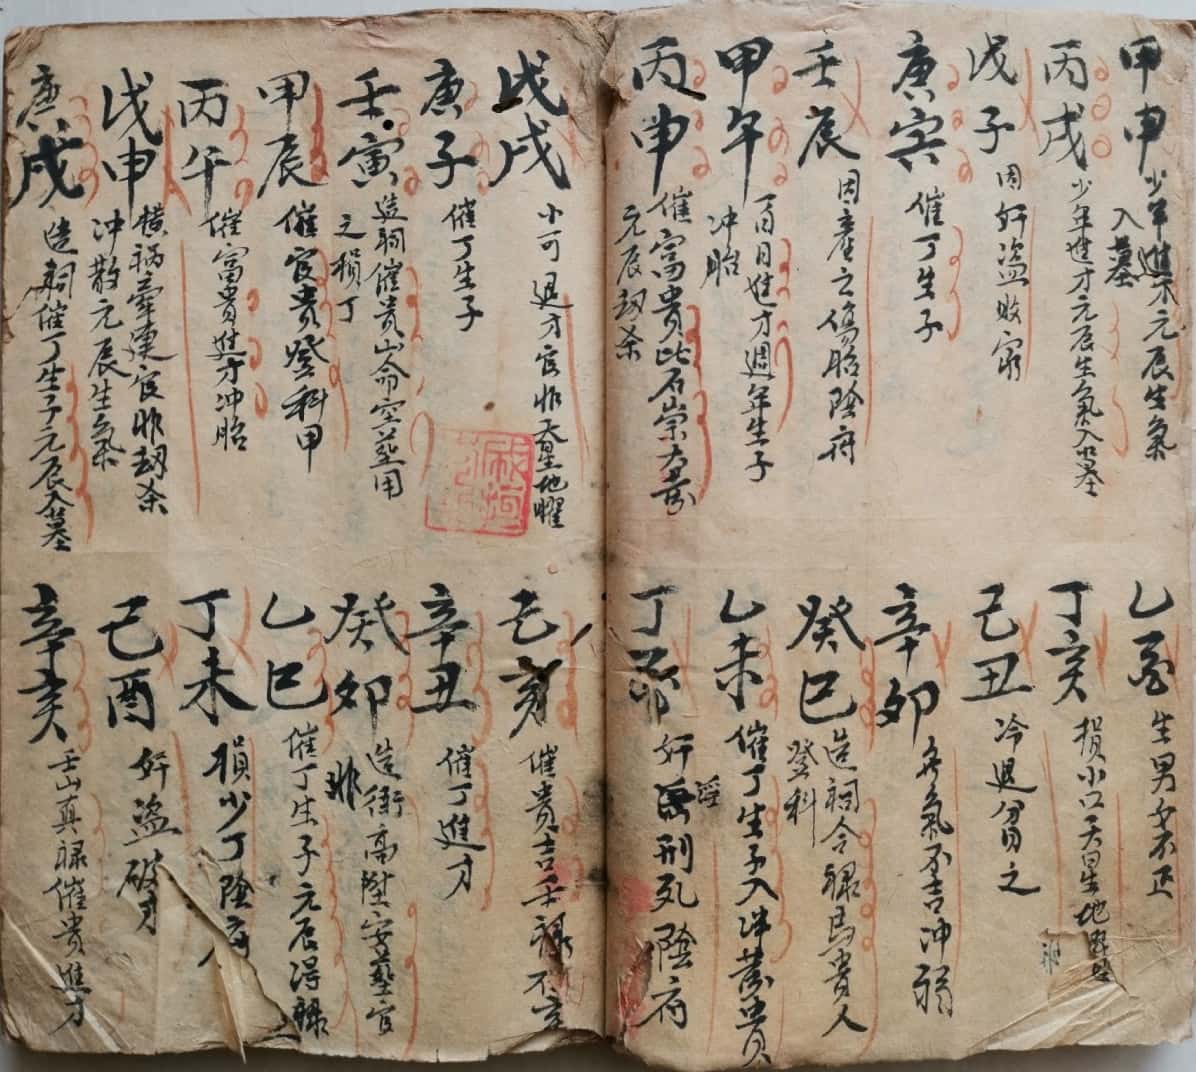 甲申 少年進不元辰生氣
入墓
丙戌 少年進才元辰生氣入墓
戊子 因奸盜敗窮
庚寅 催丁生子
壬辰 因產之傷胎陰府
甲午 百日進才週年生子
冲胎
丙申 催富貴此石崇大葬
元辰劫杀
乙酉 生男女不正
丁亥 損小口天星地曜
己丑 冷退分之
辛卯 氣不吉冲
癸巳 造祠合祿馬貴人
登科
乙未 催丁生子入葬貴
丁 奸淫刑死陰府
戊戌 小可退才官非天星地曜
庚子 催丁生子
壬寅 造祠催貴山命空莖用
之損丁
甲辰 催官貴登科甲
丙午 催富貴進才冲胎
戊申 橫禍牽連官非劫杀
冲散元辰生氣
庚戌 造祠催丁生子元辰入墓
己亥 催貴吉壬祿不
辛丑 催丁進才
癸卯 造衙高陞安墓官
非
乙巳 催丁生子元辰得祿
丁未 損少丁陰府
己酉 奸盜破才
辛亥 壬山真祿催貴進才